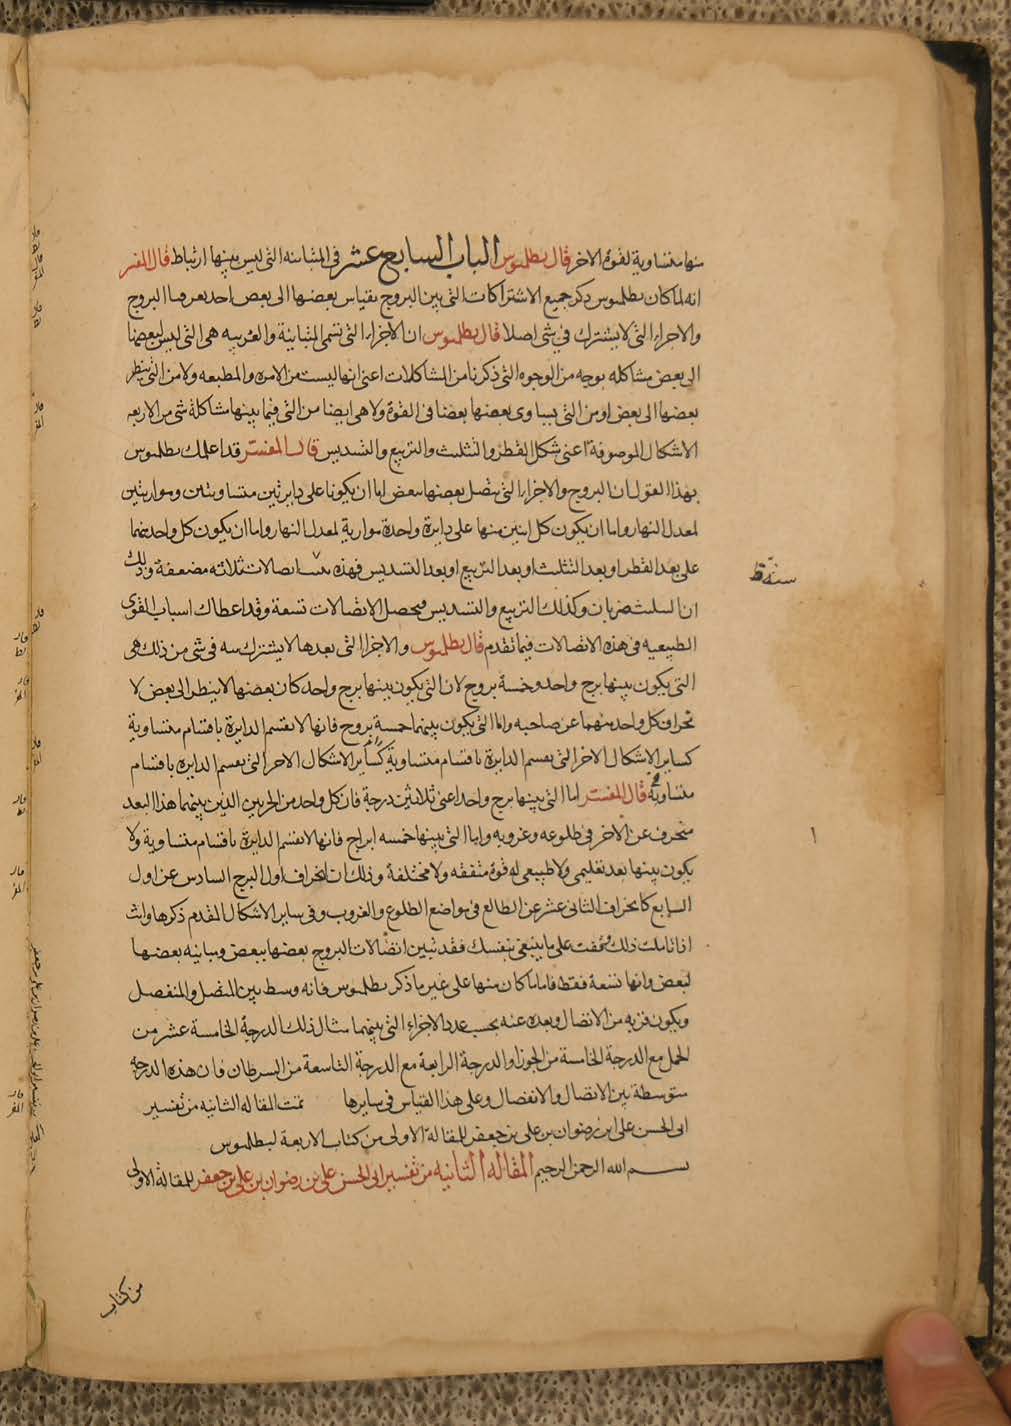 منها متساوية لقوة الاخر قال بطلميوس الباب السابع عشر في المتباينه التي ليس بينها ارتباط قال المفسر
انه لما كان بطلميوس ذكر جميع الاشتراكات التي بين البروج بقياس بعضها الى بعض احد يعرفنا البروج
والاجزاء التي لا يشترك في شي اصلا قال بطلميوس ان الاجزاء التي تسمى المتباينة والغريبه هي التي ليس لبعضها
الى بعض مشاكله بوجه من الوجوه التي ذكرنا من المشاكلات اعني انها ليست من الامره والمطيعه ولا من التي ينظر
بعضها الى بعض او من التي يساوي بعضها بعضا في القوة ولا هي ايضا من التي فيما بينها مشاكلة شي من الاربعه
الاشكال الموصوفة اعني شكل القطر والتثليث والتربيع والتسديس قال المفسر قد اعلمك بطلميوس
بهذا القول ان البروج والاجزاء التي يتصل بعضها ببعض اما ان يكونا على دايرتين متساويتين وموازيتين
لمعدل النهار واما ان يكون كل اثنين منها على دايرة واحدة موازية لمعدل النهار واما ان يكون كل واحد منهما
على بعد القطر او بعد التثليث او بعد التربيع او بعد التسديس فهذه اتصالات ثلاثه مضعفة وذلك
ان التثليث ضربان وكذلك التربيع والتسديس فيحصل الاتصالات تسعة وقد اعطاك اسباب القوى
الطبيعيه في هذه الاتصالات فيما تقدم قال بطلميوس والاجزا التي بعدها لا يشترك بته في شي من ذلك هي
التي يكون بينها برج واحد وخمسة بروج لان التي يكون بينها برج واحد كان بعضها لا ينظر الى بعض لا
نحراف كل واحد منهما عن صاحبه واما التي يكون بينهما خمسة بروج فانها لا تقسم الدايرة باقسام متساوية
كساير الاشكال الاخر التي تقسم الدايرة باقسام متساوية كساير الاشكال الاخر التي تقسم الدايره باقسام
متساوية قال المفسر اما التي بينها برج واحد اعني ثلاثين درجة فان كل واحد من الجزيين الذين بينهما هذا البعد
منحرف عن الاخر في طلوعه وغروبه واما التي بينها خمسه ابراج فانها لا تقسم الدايرة باقسام متساوية ولا
يكون بينها بعد تعليمي ولا طبيعي له قوة متفقه ولا مختلفة وذلك ان انحراف اول البرج السادس عن اول
السابع كانحراف الثاني عشر عن الطالع في مواضع الطلوع والغروب وفي ساير الاشكال المقدم ذكرها وانت
اذا تاملت ذلك وقفت على ما ينبغي بنفسك فقد تبين اتصالات البروج بعضها ببعض ومباينه بعضها
لبعض وانها تسعة فقط فاما ما كان منها على غير ما ذكر بطلميوس فانه وسط بين المتصل والمنفصل
ويكون قربه من الاتصال وبعده عنه بحسب عدد الاجزاء التي بينهما مثال ذلك الدرجة الخامسة عشر من
الحمل مع الدرجة الخامسة من الجوزا والدرجة الرابعة مع الدرجة التاسعة من السرطان فان هذه الدرجه
متوسطة بين الاتصال والانفصال وعلى هذا القياس في سايرها تمت المقاله الثانيه من تفسير
ابي الحسن علي ابن رضوان بن علي بن جعفر للمقالة الاولى من كتاب الاربعة لبطلميوس
بسم الله الرحمن الرحيم المقاله الثانيه من تفسير ابي الحسن علي بن رضوان بن علي بن جعفر للمقالة الاولى
من كتاب